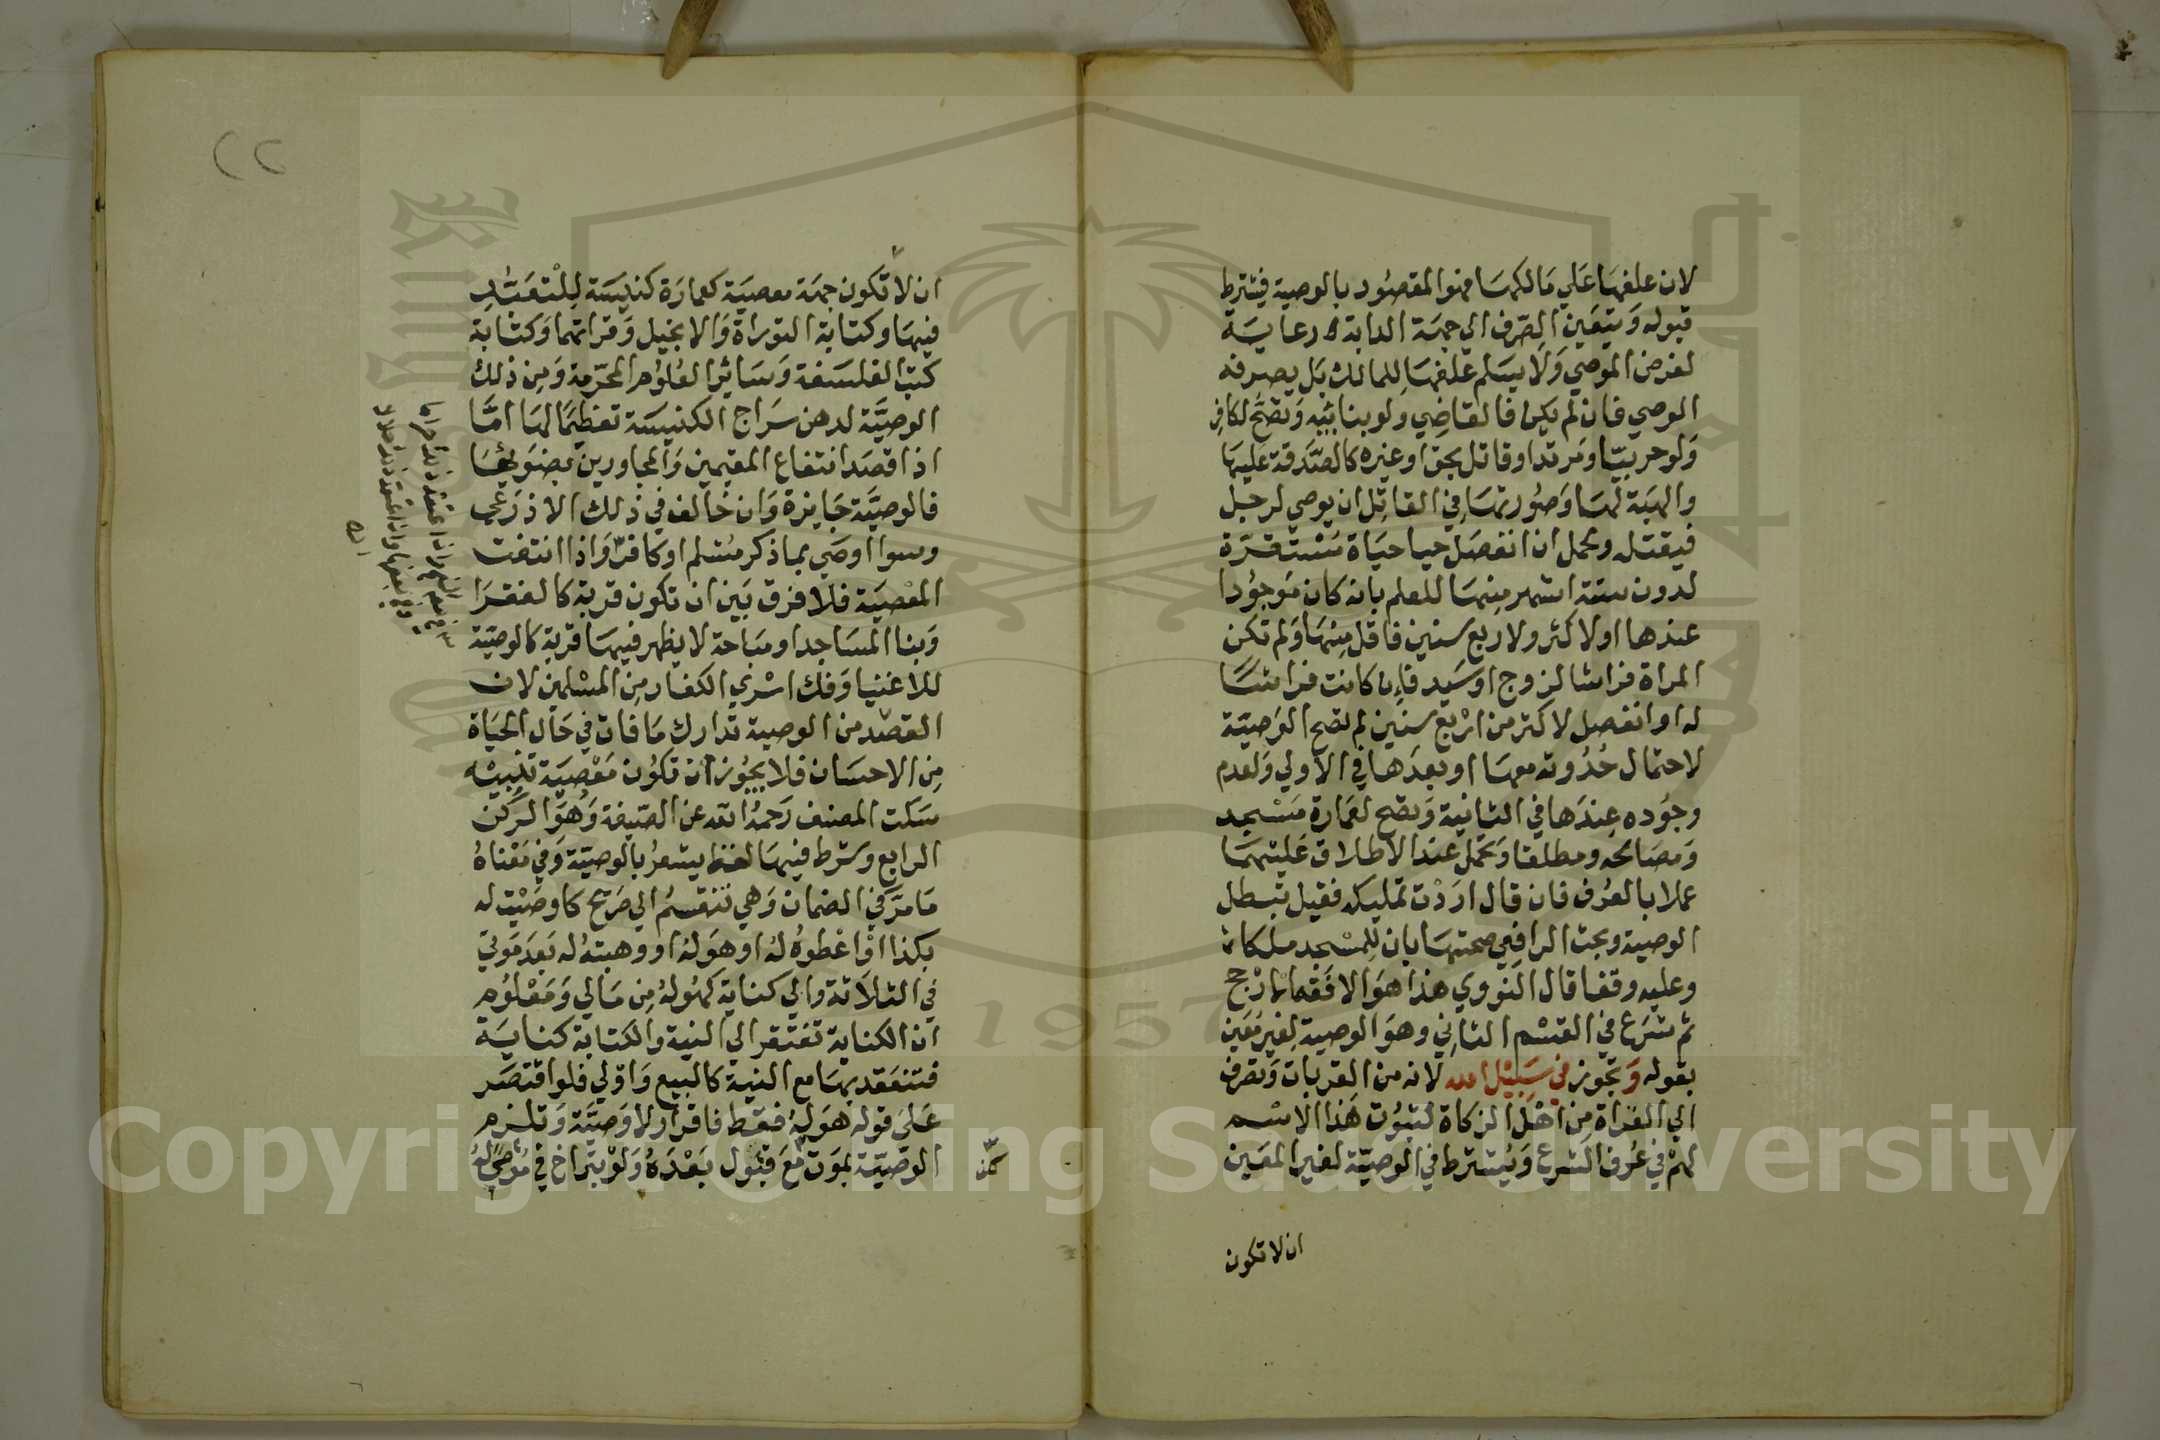 لان علفها علي مالكها فهو المقصود بالوصية فيشترط
قبوله ويتعين الصرف الي جهة الدابة رعاية
لغرض الموصي ولا يسلم علفها للمالك بل يصرفه
الوصي فان لم يكن فالقاضي ولو بنائبه وتصح لكافر
ولو حربيا ومرتدا وقاتل بحق او غيره كالصدقة عليها
والهبة لها وصورتها في القاتل ان يوصي لرجل
فيقتله ولحمل ان انفصل حيا حياة مستقرة
لدون ستة اشهر منها للعلم بانه كان موجودا
عندها او لاكثر ولاربع سنين فاقل منها ولم تكن
المراة فراشا لزوج او سيد فان كانت فراشا
له او انفصل لاكثر من اربع سنين لم تصح الوصية
لاحتمال حدوثه معها او بعدها في الاولي ولعدم
وجوده عندها في الثانية وتصح لعمارة مسجد
ومصالحه ومطلقا وتحمل عند الاطلاق عليهما
عملا بالعرف فان قال اردت تمليكه فقيل تبطل
الوصية وبحث الرافعي صحتها بان للمسجد ملكا
وعليه وقفا قال النووي هذا هو الافقه الارجح
ثم شرع في القسم الثاني وهو الوصية لغير معين
بقوله وتجوز في سبيل الله لانه من القربات وتصرف
الي الغزاة من اهل الزكاة لثبوت هذا الاسم
لهم في عرف الشرع ويشترط في الوصية لغير المعين
ان لا تكون
ان لا تكون جهة معصية كعمارة كنيسة للتعبد
فيها وكتابة التوراة والانجيل وقراتهما وكتابة
كتب الفلسفة وسائر العلوم المحرمة ومن ذلك
الوصية لدهن سراج الكنيسة تعظيما لها اما
اذا قصد انتفاع المقيمين والمجاورين بضوئها
فالوصية جايزة وان خالف في ذلك الاذرعي
وسوا اوصي بما ذكر مسلم او كافر واذا انتفت
المعصية فلا فرق بين ان تكون قربة كالفقرا
وبنا المساجد او مباحة لا يظهر فيها قربة كالوصية
للاغنيا وفك اسري الكفار من المسلمين لان
القصد من الوصية تدارك ما فات في حال الحياة
من الاحسان فلا يجوز ان تكون معصية تنبيه
سكت المصنف رحمه الله عن الصيغة وهو الركن
الرابع وشرط فيها لفظ يشعر بالوصية وفي معناه
ما مر في الضمان وهي تنقسم الي صريح كاوصيت له
بكذا او اعطوه له او هو له او وهبته له بعد موتي
في الثلاثة والي كناية كهو له من مالي ومعلوم
ان الكناية تفتقر الي النية والكتابة كناية
فتنعقد بها مع النية كالبيع واولي فلو اقتصر
علي قوله هو له فقط فاقرار لا وصية وتلزم
الوصية بموت مع قبول بعده ولو بتراخ في موصي له